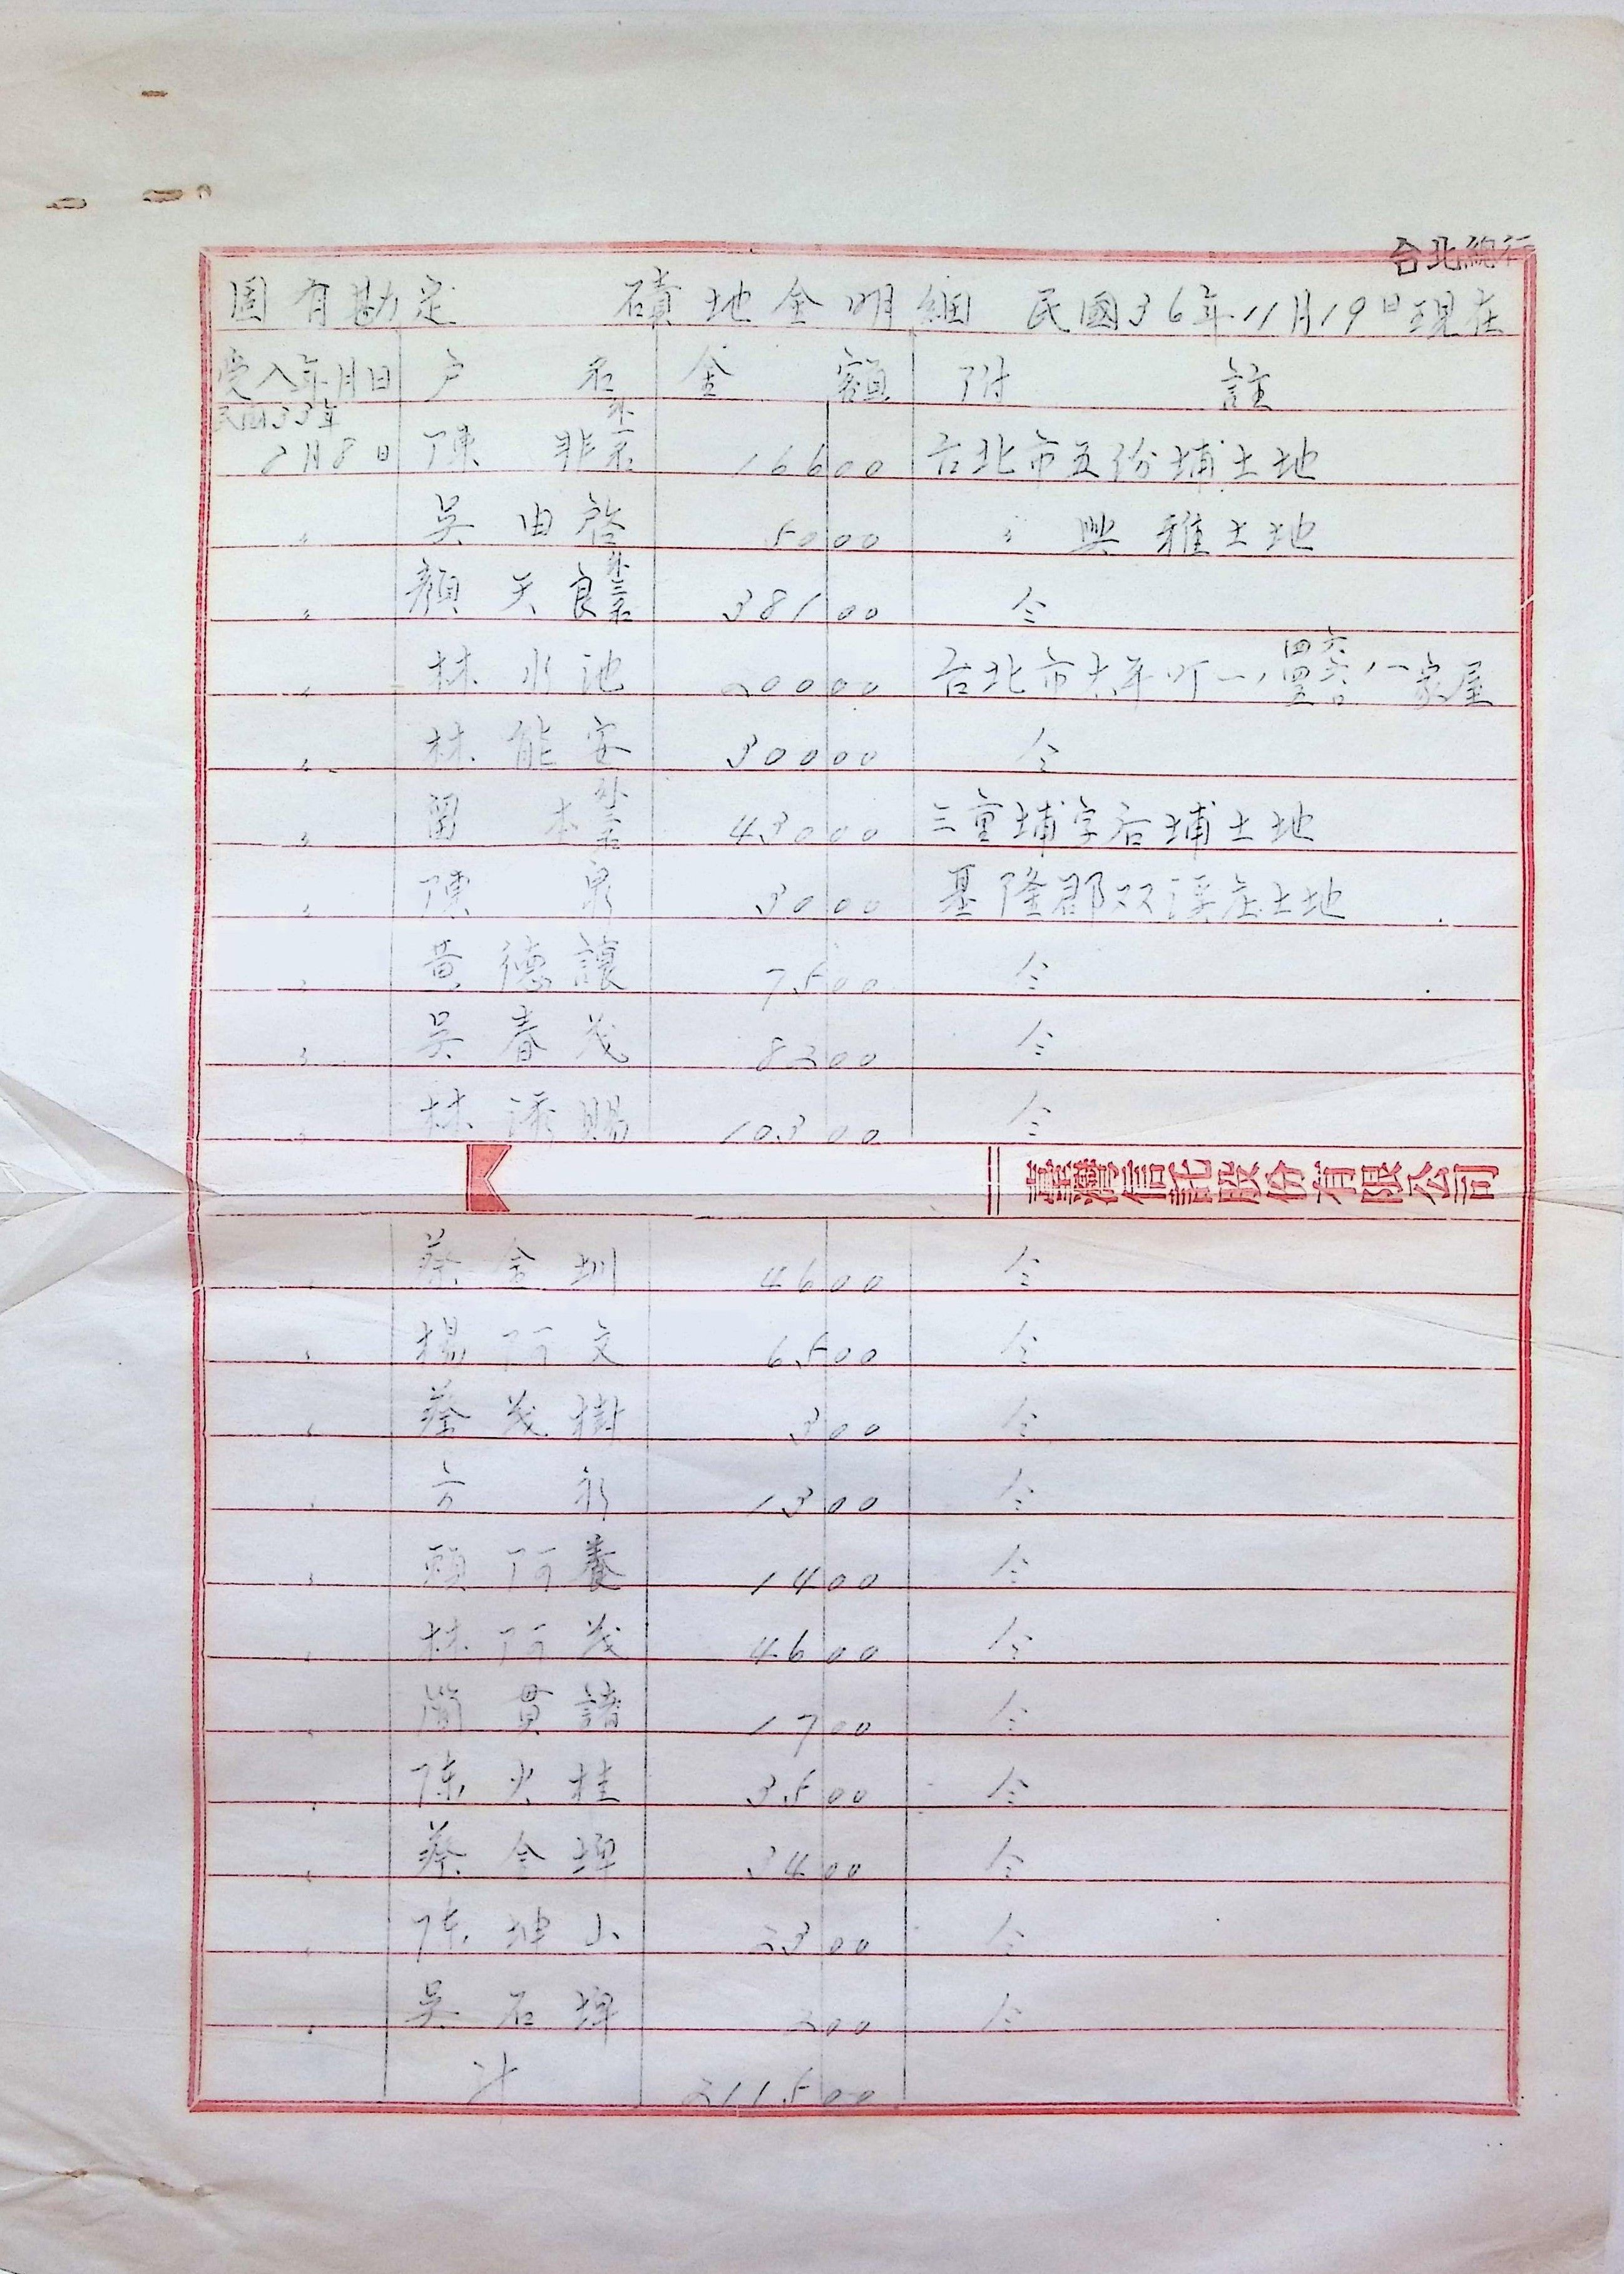 台北總行
固有勘定 磧地金明細 民國36年11月19日現在
受入年月日 戶名 金額 附註
民國33年
8月8日 陳 非 外一名 16600 台北市五份埔土地
〃 吳由啓 5000 〃 興雅土地
〃 顏天良 外三名 38100 仝
〃 林水池 20000 台北市太平町一、家屋
〃 林能安 30000 仝
〃 本 外 43000 三重埔字后埔土地
〃 陳 泉 3000 基隆郡双溪庄土地
〃 黃德讓 7500 仝
〃 吳春茂 8200 仝
〃 林添賜 10300 仝
臺灣信託股份有限公司
〃 蔡金圳 4600 仝
〃 楊阿文 6500 仝
〃 蔡茂樹 300 仝
〃 方 1300 仝
〃 阿養 1400 仝
〃 林阿茂 4600 仝
〃 簡貫諸 1700 仝
〃 陈火桂 3500 仝
〃 蔡金埤 3400 仝
〃 陈坤山 2300 仝
〃 吳石埤 200 仝
計 211500